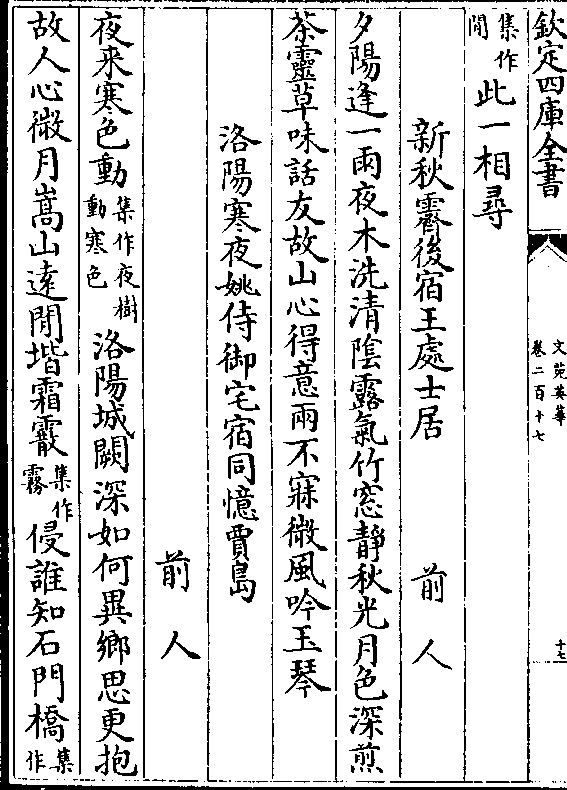 欽定四庫全書
文苑英華
卷二百十七
十三
集作閒此一相尋
新秋霽後宿王處士居 前人
夕陽逢一雨夜木洗清陰露氣竹窓靜秋光月色深煎
茶靈草味話友故山心得意兩不寐微風吟玉琴
洛陽寒夜姚侍御宅宿同憶賈島
前人
夜来寒色動集作夜樹動寒色洛陽城闕深如何異鄉思更抱
故人心微月嵩山逺閒堦霜霰集作霧侵誰知石門橋集作